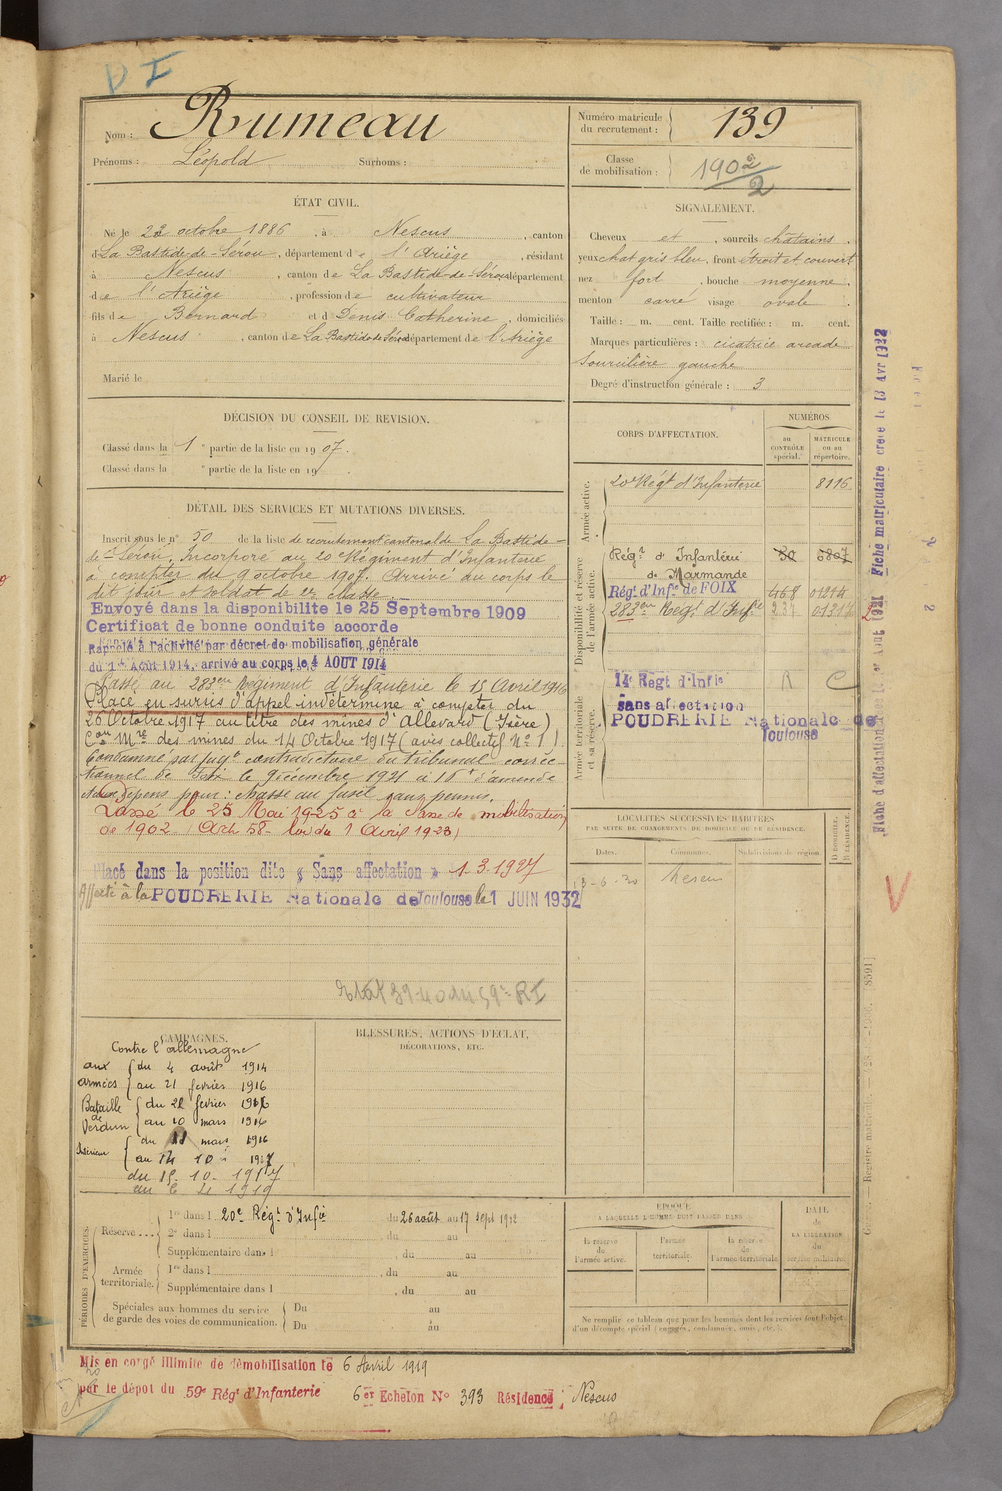 D I
Nom : Rumeau
Prénoms : Léopold Surnoms :
Numéro matricule du recrutement : 139
Classe de mobilisation : 1902
2
ÉTAT CIVIL.
Né le 23 octobre 1886, à Nescus, canton
d La Bastide-de-Sérou, département de l'Ariège, résidant
à Nescus, canton de La Bastide-de-Sérou, département
de l'Ariège, profession de cultivateur
fils de Bernard et d Denis Catherine, domiciliés
à Nescus, canton de La Bastide de Sérou département de l'Ariège
Marié le
SIGNALEMENT.
Cheveux et, sourcils châtains,
yeux chat gris bleu, front étroit et couvert
nez fort, bouche moyenne,
menton carré visage ovale.
Taille : m. cent. Taille rectifiée : m. cent.
Marques particulières : cicatrice arcade
sourcilière gauche
Degré d'instruction générale : 3
DÉCISION DU CONSEIL DE REVISION.
Classé dans la 1e partie de la liste en 1907.
Classé dans la e partie de la liste en 19 .
DÉTAIL DES SERVICES ET MUTATIONS DIVERSES.
Inscrit sous le n° 50 de la liste de recrutement cantonal de La Bastide-
de-Sérou. Incorporé au 20e Régiment d'Infanterie
à compter du 9 octobre 1907. Arrivé au corps le
dit jour et soldat de 2e classe.
Envoyé dans la disponibilite le 25 Septembre 1909
Certificat de bonne conduite accorde
Rappelé à l'activité par décret de mobilisation générale
du 1er Août 1914, arrivé au corps le 4 AOUT 1914
Passé au 283eme Regiment d'Infanterie le 15 Avril 1916
Placé en sursis d'appel indéterminé à compter du
26 Octobre 1917 au titre des mines d'Allevard (Isère)
Con Mre des mines du 14 Octobre 1917 (avis collectif No 1).
Condamné par jugt contradictoire du tribunal correc-
tionnel de Foix le 9 décembre 1921 à 16 f d'amende
dépens pour : chasse au fusil sans permis.
Passé le 25 Mai 1925 à la classe de mobilisation
de 1902 (Art. 58- loi du 1 Avril 1923)
Placé dans la position dite « Sans affectation » 1-3-1927
Affecté à la POUDRERIE Nationale de Toulouse le 1 JUIN 1932
59e RI
CORPS D'AFFECTATION.
NUMÉROS
au CONTRÔLE spécial.
MATRICULE ou au répertoire.
Armée active.
20e Régt d'Infanterie 8116
Disponibilité et réserve de l'armée active.
Régt d'Infanterie 30 6807
de Marmande
Régt d'Infie de FOIX 468 01214
283eme Regt d'Infie 237
Armée territoriale et sa réserve.
14e Regt d'Infie R C
sans affectation
POUDRERIE Nationale de
Toulouse
LOCALITÉS SUCCESSIVES HABITÉES
PAR SUITE DE CHANGEMENTS DE DOMICILE OU DE RÉSIDENCE.
Dates. Communes. Subdivisions de région. D. DOMICILE. R. RÉSIDENCE.
Nescus
Fiche matriculaire créée le 13 Avr 1922
V
CAMPAGNES.
Contre l'allemagne
aux armées du 4 août 1914
au 21 fevrier 1916
Bataille de Verdun du 22 fevrier 1916
au 10 mars 1916
Intérieur du 11 mars 1916
au 14 10 1917
du 15.10.1917
au 6 4 1919
BLESSURES, ACTIONS D'ÉCLAT,
DÉCORATIONS, ETC.
PÉRIODES D'EXERCICES.
Réserve... 1re dans l 20e Régt d'Infie du 26 août au 17 sept 1912
2e dans l du au
Supplémentaire dans l , du au
Armée territoriale. 1re dans l , du au
Supplémentaire dans l , du au
Spéciales aux hommes du service de garde des voies de communication. Du au
Du au
ÉPOQUE
À LAQUELLE L'HOMME DOIT PASSER DANS
la réserve de l'armée active.
l'armée territoriale.
la réserve de l'armée territoriale.
DATE de LA LIBÉRATION du service militaire.
Ne remplir ce tableau que pour les hommes dont les services font l'objet
d'un décompte spécial (engagés, condamnés, omis, etc.).
Mis en congé illimité de démobilisation le 6 Avril 1919
par le dépot du 59e Régt d'Infanterie 6er Echelon No 393 Résidence : Nescus